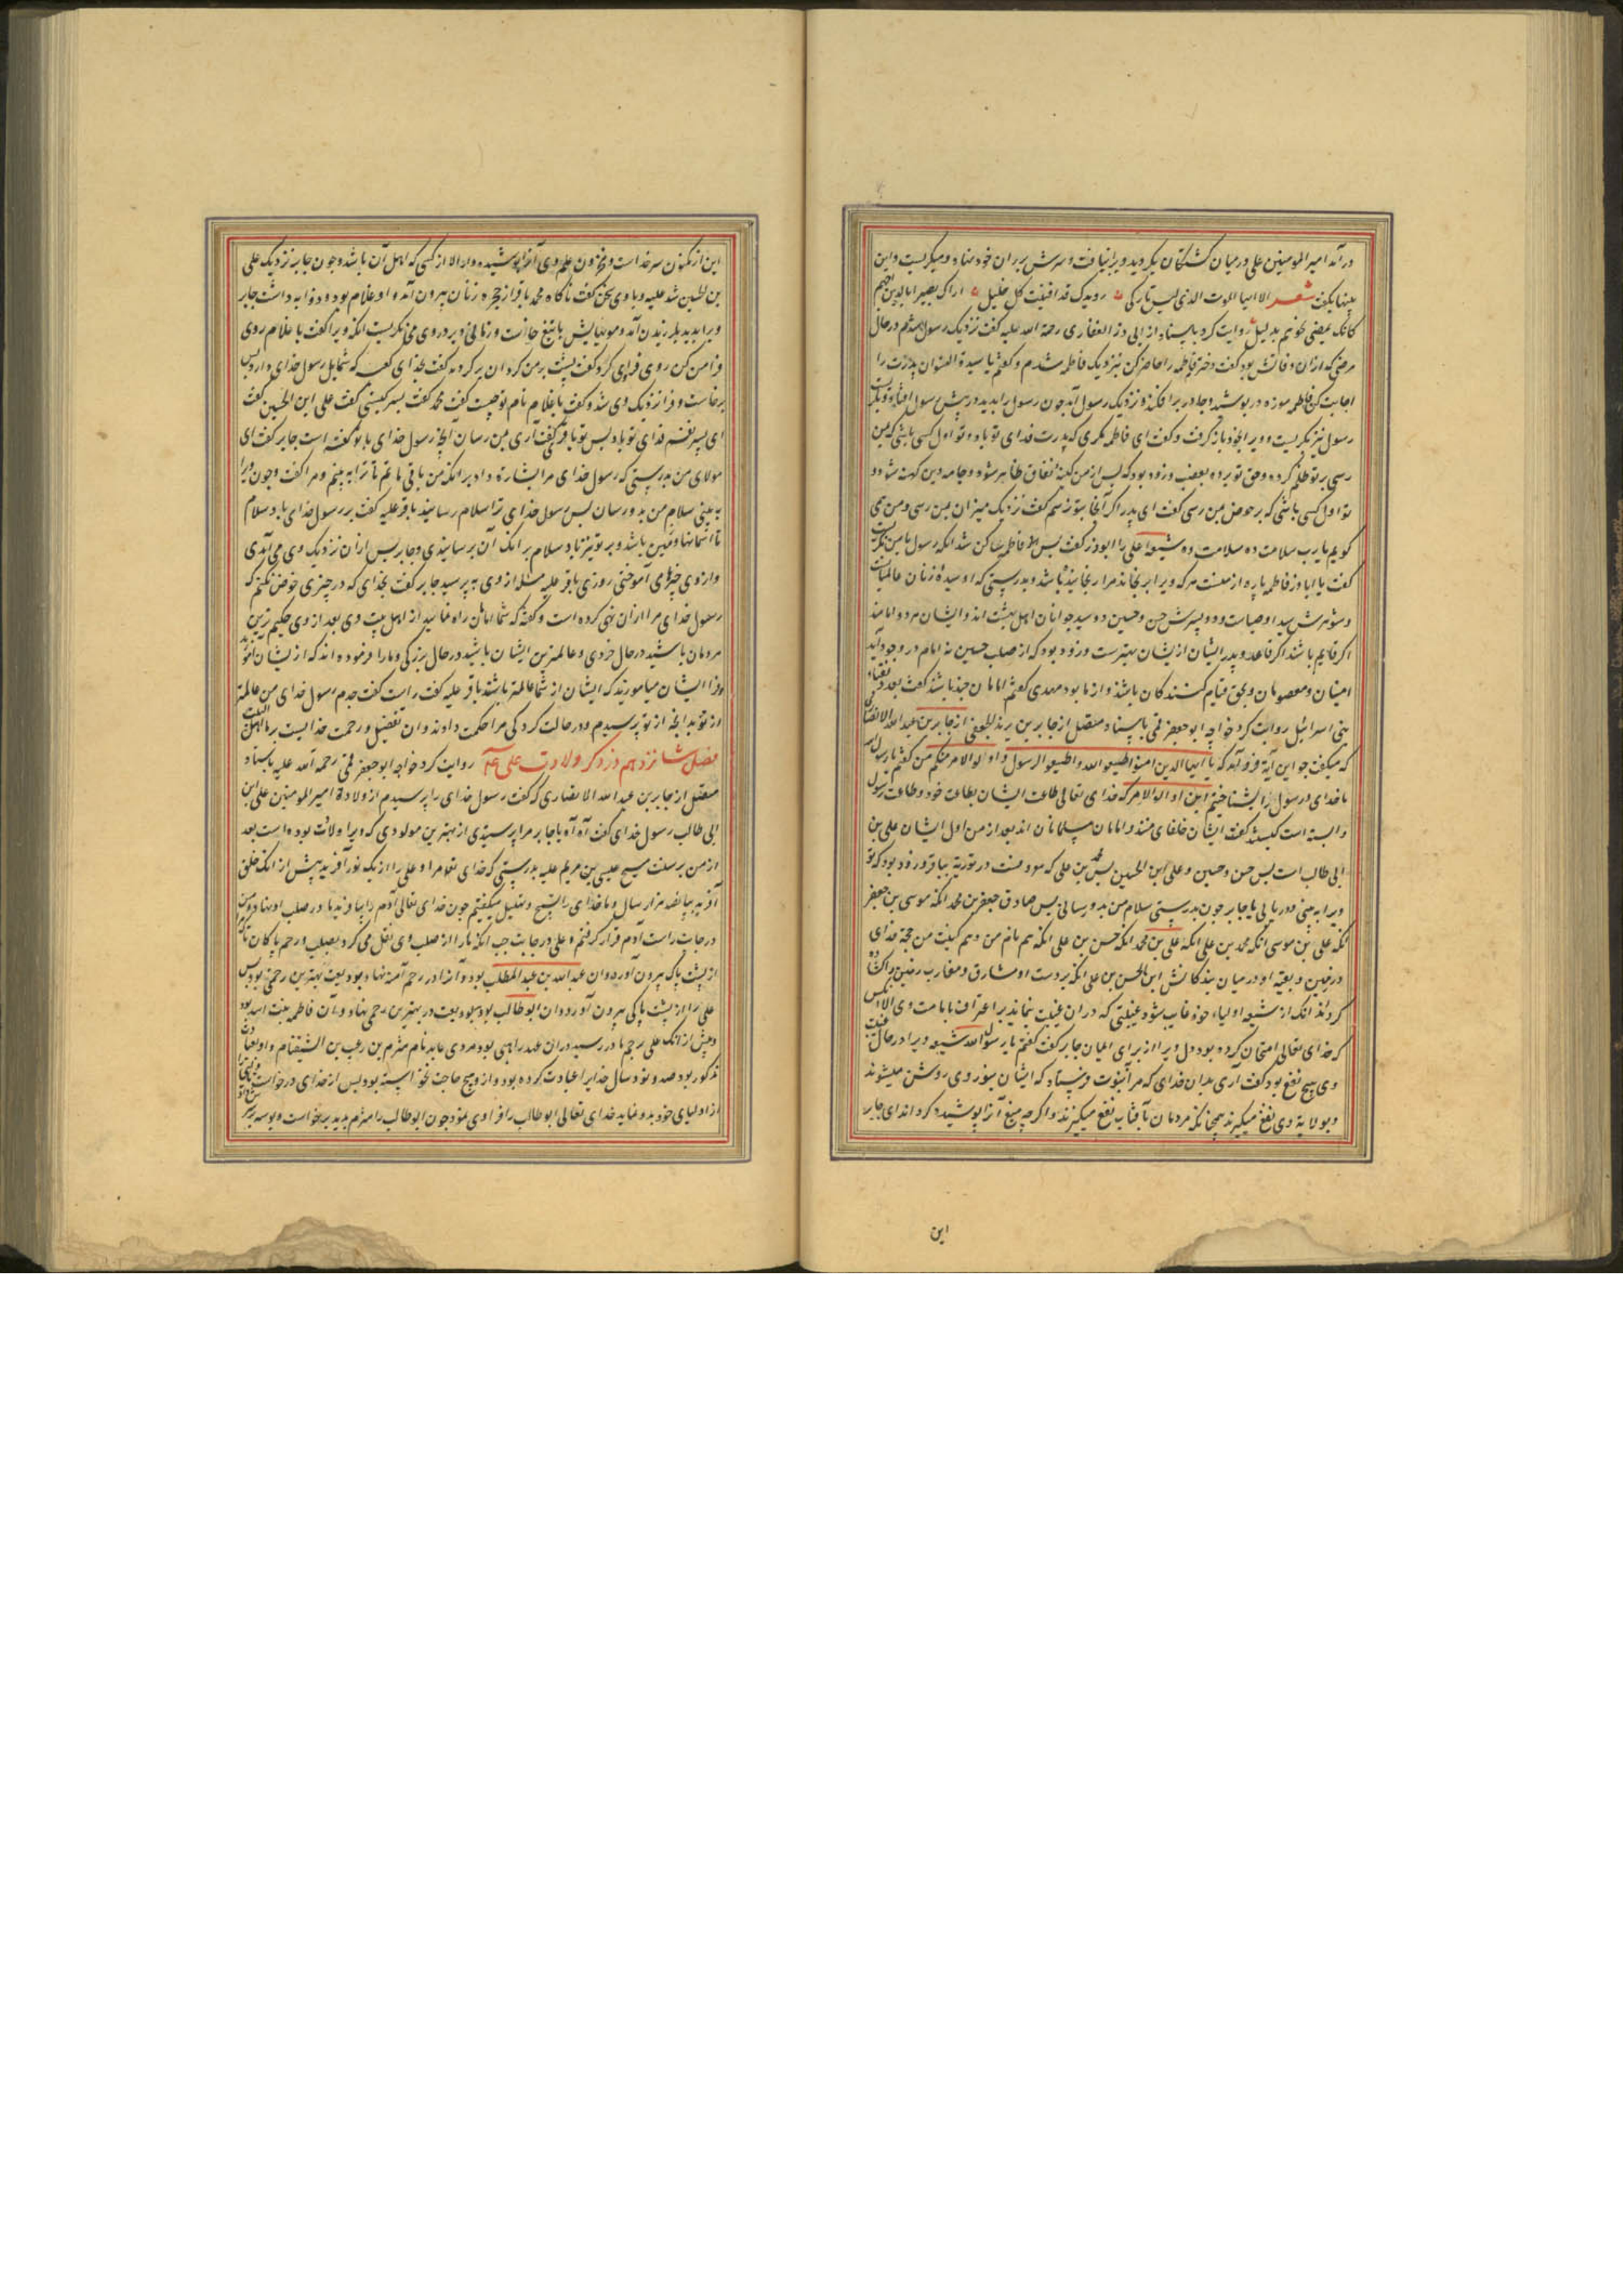 در آمد امیر المومنین علی در میان کشتکان بکردید ویرا نیافت و سرش بر ران خود نهاد و میکریست و این
بیتها بکفت شعر الا ایها الموت الذی لیس تارکی رویدک قد افنیت کل خلیل اراک بصیرا بالذین احبهم
کانک تمضی نحوهم بدلیل روایت کرد باسناد از ابی ذر الغفاری رحمة الله علیه کفت نزدیک رسول شدم در حال
مرضی که از آن وفاتش بود کفت دخترم فاطمه را حاضر کن بنزدیک فاطمه شدم و کفتم یا سیدة النسوان پدرت را
اجابت کن فاطمه موزه در پوشید و چادر بر افکند و نزدیک رسول آمد چون رسول را بدید در پیش رسول افتاد و بکریست
رسول نیز بکریست و ویرا بخود باز کرفت و کفت ای فاطمه مکری که پدرت فدای تو باد و تو اول کسی باشی که بمن
رسی بر تو ظلم کرده و حق تو برده بغصب و زود بود که پس از من کینه نفاق ظاهر شود و جامه دین کهنه شود و
تو اول کسی باشی که بر حوض بمن رسی کفت ای پدر اکر آنجا بتو نرسم کفت نزدیک میزان بمن رسی و من می
کویم یا رب سلامت ده سلامت ده شیعه علی را ابوذر کفت پس فاطمه ساکن شد انکه رسول با من نکریست
کفت یا اباذر فاطمه پاره از منست هر که ویرا برنجاند مرا رنجانیده باشد و بدرستی که او سیده زنان عالمیانست
و شوهرش سید اوصیاست و دو پسرش حسن و حسین دو سید جوانان اهل بهشت اند و ایشان هر دو امامند
اکر قایم باشند اکر قاعد و پدر ایشان از ایشان بهترست و زود بود که از صلب حسین نه امام در وجود آید
امینان و معصومان و بحق قیام کنندکان باشند و از ما بود مهدی کفتم امامان چند باشند کفت بعدد نقباء
بنی اسرائیل روایت کرد خواجه ابو جعفر قمی باسناد متصل از جابر بن یزید الجعفی از جابر بن عبد الله الانصاری
که میکفت چو این آیة فرو آمد که یا ایها الذین امنوا اطیعوا الله و اطیعوا الرسول و اولو الامر منکم من کفتم یا رسول الله
ما خدای و رسول را بشناختیم این اولو الامر که خدای تعالی طاعت ایشان بطاعت خود و طاعت رسول
وابسته است کیستند کفت ایشان خلفای منند و امامان مسلمانان اند بعد از من اول ایشان علی بن
ابی طالب است پس حسن و حسین و علی ابن الحسین پس محمد بن علی که معروفست در توریة بباقر و زود بود که تو
ویرا به بینی و دریابی یا جابر چون بدرستی سلام من بدو رسانی پس صادق جعفر بن محمد انکه موسی بن جعفر
انکه علی بن موسی انکه محمد بن علی انکه علی بن محمد انکه حسن بن علی انکه هم نام من و هم کنیت من حجة خدای
در زمین و بقیه او در میان بندکانش ابن الحسن بن علی انکه بر دست او مشارق و مغارب زمین بر اکشاده
کرداند انک از شیعه و اولیاء خود غایب شود غیبتی که در ان غیبت نماند بر اعتراف بامامت وی الا انکس
که خدای تعالی امتحان کرده بود دل ویرا از برای ایمان جابر کفت کفتم یا رسول الله شیعه ویرا در حال غیبت
وی هیچ نفع بود کفت آری بدان خدای که مرا بنبوت فرستاد که ایشان بنور وی روشن میشوند
و بولایة وی نفع میکیرند همچنانکه مردمان بآفتاب نفع میکیرند و اکرچه میغ آنرا پوشیده کرداند ای جابر
این
این از مکنون سر خداست و مخزون علم وی آنرا پوشیده دار الا از کسی که اهل آن باشد و چون جابر نزدیک علی
بن الحسین شد علیه و با وی سخن کفت ناکاه محمد باقر از حجره زنان بیرون آمد و او غلام بود و دو ذوابه داشت جابر
ویرا بدید بلرزیدن آمد و مویهایش بر تنش خاست و زمانی دیر در وی می نکریست انکه ویرا کفت یا غلام روی
فرا من کن روی فراوی کرد کفت پشت بر من کردان بر کردانید کفت بخدای کعبه که شمایل رسول خدای دارد پس
برخاست و فرا نزدیک وی شد و کفت یا غلام نام تو چیست کفت محمد کفت پسر کیستی کفت علی ابن الحسین کفت
ای پسر نفسم فدای تو باد پس تو باقری کفت آری بمن رسان انچه رسول خدای با تو کفته است جابر کفت ای
مولای من بدرستی که رسول خدای مرا بشارة داد بر انکه من باقی مانم تا ترا به بینم و مرا کفت چون ویرا
به بینی سلام من بدو رسان پس رسول خدای ترا سلام رسانید باقر علیه کفت بر رسول خدای باد سلام
تا آسمانها و زمین باشد و بر تو نیز باد سلام بر انک آن برسانیدی و جابر پس از آن نزدیک وی می آمدی
و از وی چیزهای آموختی روزی باقر علیه مسئله از وی بپرسید جابر کفت بخدای که در چیزی خوض نکنم که
رسول خدای مرا از ان نهی کرده است و کفته که شما امامان راه نمائید از اهل بیت وی بعد از وی حکیم ترین
مردمان باشید در حال خردی و عالمترین ایشان باشید در حال بزرکی و ما را فرموده اند که از ایشان آموزید
و فرا ایشان میاموزید که ایشان از شما عالمتر باشند باقر علیه کفت راست کفت جدم رسول خدای من عالمترم
از تو بدانچه از تو پرسیدم و در حالت کودکی مرا حکمت دادند و ان بفضل و رحمت خدایست بر ما اهل البیت
فصل شانزدهم در ذکر ولادت علی عم روایت کرد خواجه ابو جعفر قمی رحمة الله علیه باسناد
متصل از جابر بن عبد الله الانصاری که کفت رسول خدای را پرسیدم از ولادة امیر المومنین علی ابن
ابی طالب رسول خدای کفت آه آه یا جابر مرا پرسیدی از بهترین مولودی که ویرا ولادت بوده است بعد
از من بر سنت مسیح عیسی بن مریم علیه بدرستی که خدای تعالی مرا و علی را از یک نور آفرید پیش از انک خلق
آفریند بپانصد هزار سال و ما خدای را تسبیح و تهلیل میکفتیم چون خدای تعالی آدم را بیافرید ما در صلب او نهاد و من
در جانب راست آدم قرار کرفتم و علی در جانب چپ انکه ما را از صلب وی نقل می کرد بصلب و رحم پاکان تا مرا
از پشت پاک بیرون آورد و ان عبد الله بن عبد المطلب بود و آنرا در رحم آمنه نهاد و بودیعت بهترین رحمی بود پس
علی را از پشت پاکی بیرون آورد و ان ابو طالب بود و بودیعت در بهترین رحمی نهاد و آن فاطمه بنت اسد بود
و پیش از انک علی برحم مادر رسید در ان عهد راهبی بود مردی عابد نام مثرم بن رعیب بن الشیقنام و او بعبادت
مذکور بود صد و نود سال خدایرا عبادت کرده بود و از وی هیچ حاجت نخواسته بود پس از خدای درخواست
از اولیای خود بدو نماید خدای تعالی ابو طالب را فراوی نمود چون ابو طالب را مثرم بدید برخواست و بوسه بر سر